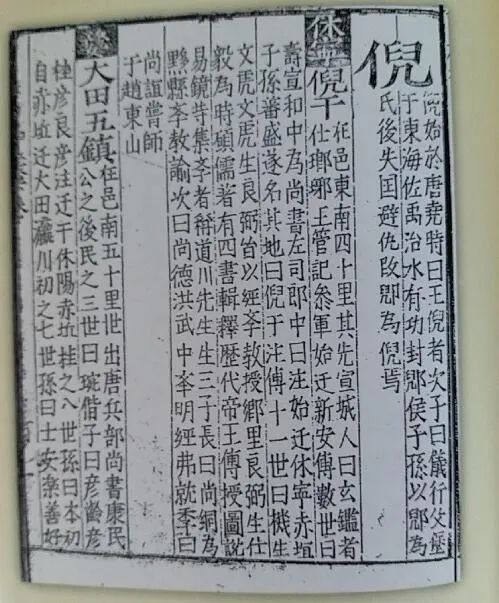 倪
倪始於唐堯時曰王倪者次子曰儀行父
于東海佐禹治水有功封郳侯子孫以郳為
氏後失国避仇改郳為倪焉
休 倪干 在邑東南四十里其先宣城人曰玄鑑者
仕瑯琊王管記參軍始迁新安傳數世曰
壽宣和中為尚書左司郎中曰注始迁休寧赤坵
子孫蕃盛遂名其地曰倪干注傳十一世曰機生
文虎文虎生良弼皆以經斈教授鄉里良弼生仕
毅為時碩儒著有四書輯釋歷代帝王傳授圖說
易鏡等集斈者稱道川先生生三子長曰尚絅為
黟縣斈教諭次曰尚德洪武中峯明經弗就季曰
尚誼嘗師
于趙東山
婺 大田五鎮 在邑南五十里世出唐兵部尚書康民
公之後民之三世曰琁偕子曰彥齡彥
桂彥良彥汪迁干休陽赤坵桂之八世孫曰本初
自赤坵迁大田川初之七世孫曰士安樂善好